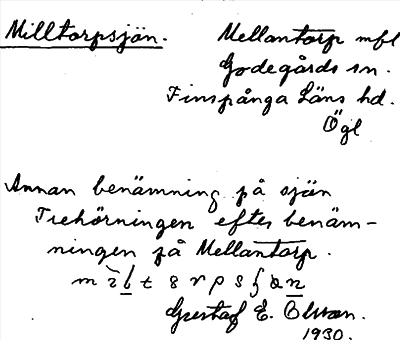 Milltorpsjön.
Mellantorp mfl
Godegårds sn.
Finspånga Läns hd.
Ögl
Annan benämning på sjön
Trehörningen efter benäm-
ningen på Mellantorp.
Gustaf E. Olsson.
1930.